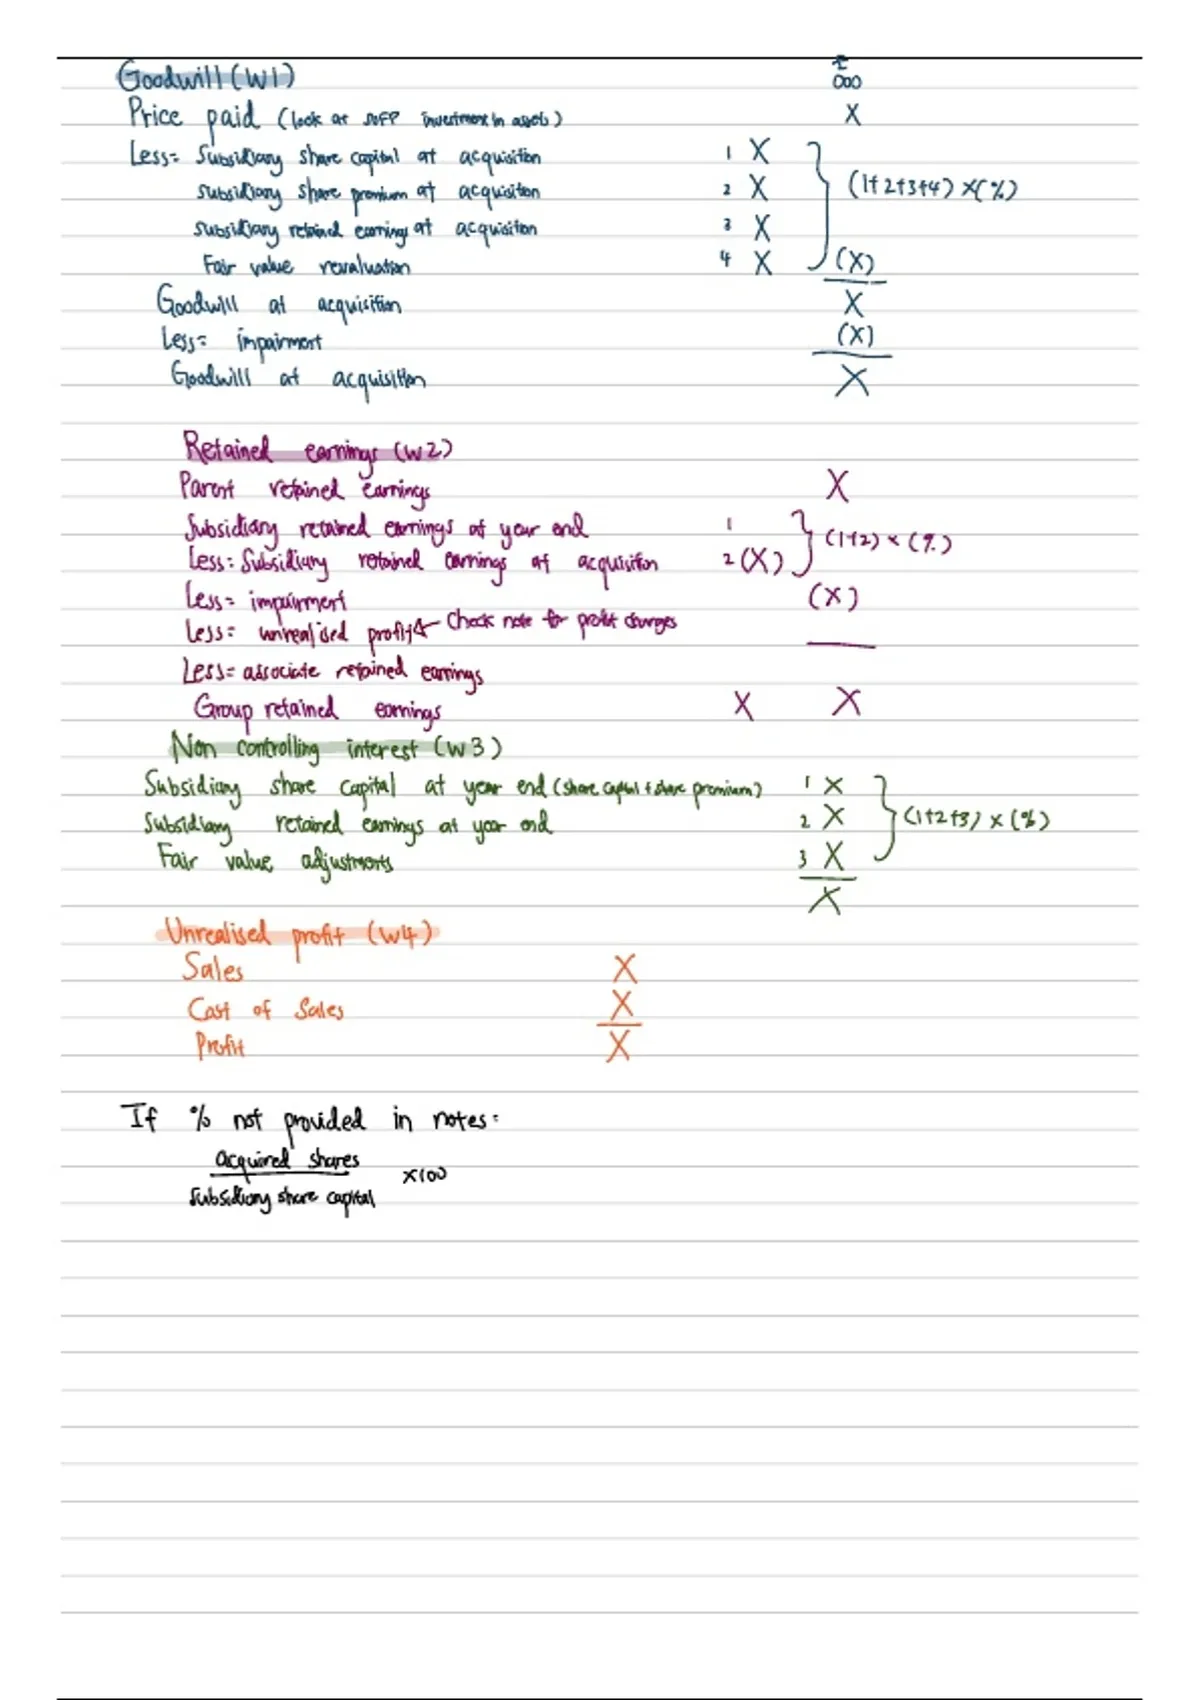 Goodwill (W1)
£
000
Price paid (look at SOFP investment in assets) X
Less= Subsidiary share capital at acquisition 1 X
subsidiary share premium at acquisition 2 X (1+2+3+4) x(%)
subsidiary retained earnings at acquisition 3 X
Fair value revaluation 4 X (X)
Goodwill at acquisition X
Less= impairment (X)
Goodwill at acquisition X
Retained earnings (W2)
Parent retained earnings X
Subsidiary retained earnings at year end 1
(1+2) x (%)
Less: Subsidiary retained earnings at acquisition 2 (X)
Less= impairment (X)
Less= unrealised profit ← Check note for profit changes
Less= associate retained earnings
Group retained earnings X X
Non controlling interest (W3)
Subsidiary share capital at year end (share capital + share premium) 1 X
Subsidiary retained earnings at year end 2 X (1+2+3) x (%)
Fair value adjustments 3 X
X
Unrealised profit (W4)
Sales X
Cost of Sales X
Profit X
If % not provided in notes:
acquired shares
x100
subsidiary share capital